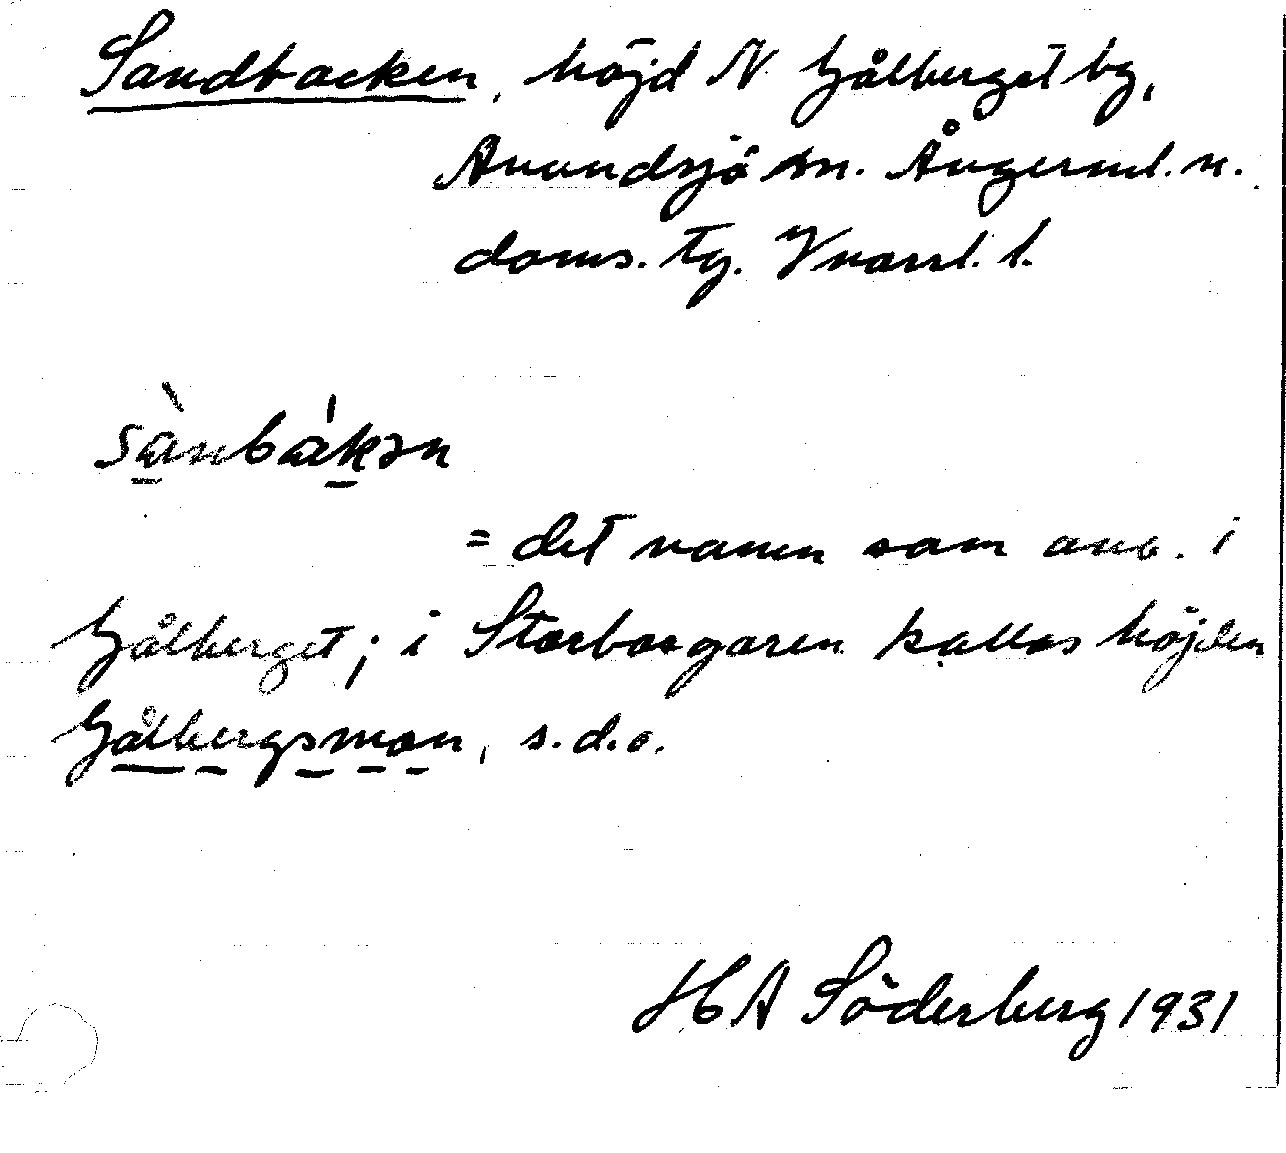 Sandbacken, höjd N Gålberget by,
Anundsjö sn. Ångerml. n.
doms. tg. Vnorrl. l.
sànbákən
= det namn som anv. i
Gålberget; i Storborgaren kallas höjden
Gålbergsmon, s.d.o.
H A Söderberg 1931